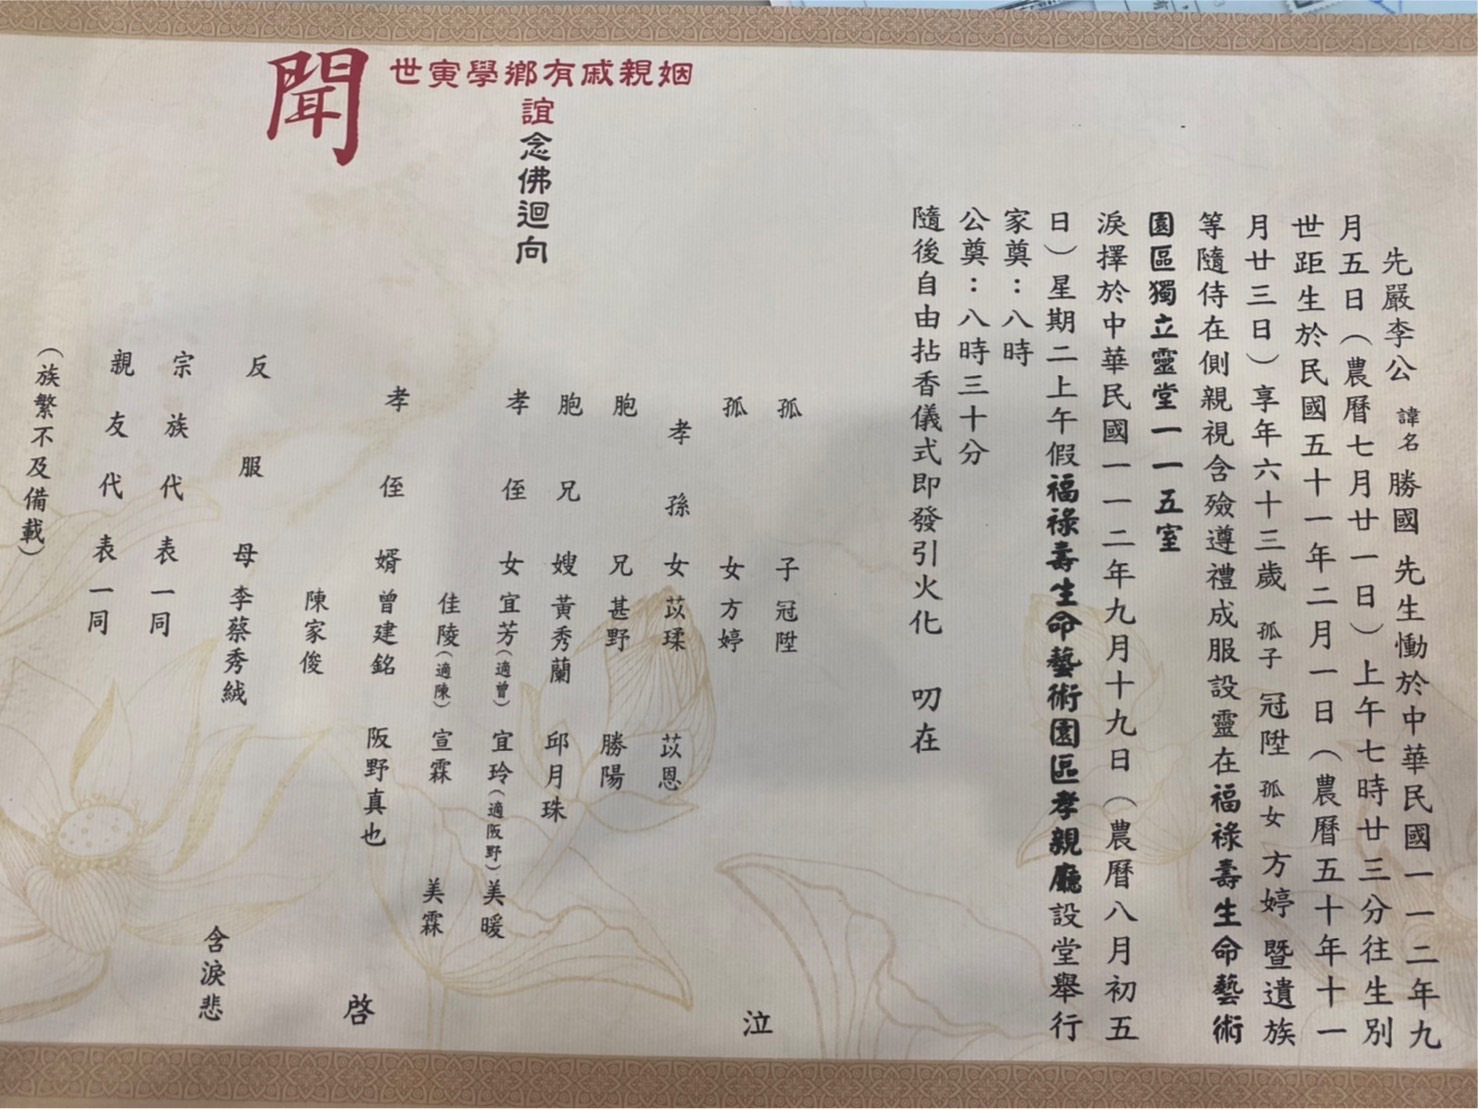 先嚴李公 諱名 勝國 先生慟於中華民國一一二年九
月五日（農曆七月廿一日）上午七時廿三分往生別
世距生於民國五十一年二月一日（農曆五十年十一
月廿三日）享年六十三歲 孤子 冠陞 孤女 方婷 暨遺族
等隨侍在側親視含殮遵禮成服設靈在福祿壽生命藝術
園區獨立靈堂一一五室
淚擇於中華民國一一二年九月十九日（農曆八月初五
日）星期二上午假福祿壽生命藝術園區孝親廳設堂舉行
家奠：八時
公奠：八時三十分
隨後自由拈香儀式即發引火化 叨在
姻親戚有鄉學寅世
誼念佛迴向
聞
孤子 冠陞
孤女 方婷
泣
孝孫女 苡瑈 苡恩
胞兄 甚野 勝陽
胞兄嫂 黃秀蘭 邱月珠
孝侄女 宜芳（適曾） 宜玲（適阪野） 美暖
佳陵（適陳） 宣霖 美霖
孝侄婿 曾建銘 阪野真也
陳家俊
啓
反服母 李蔡秀絨
含淚悲
宗族代表一同
親友代表一同
（族繁不及備載）